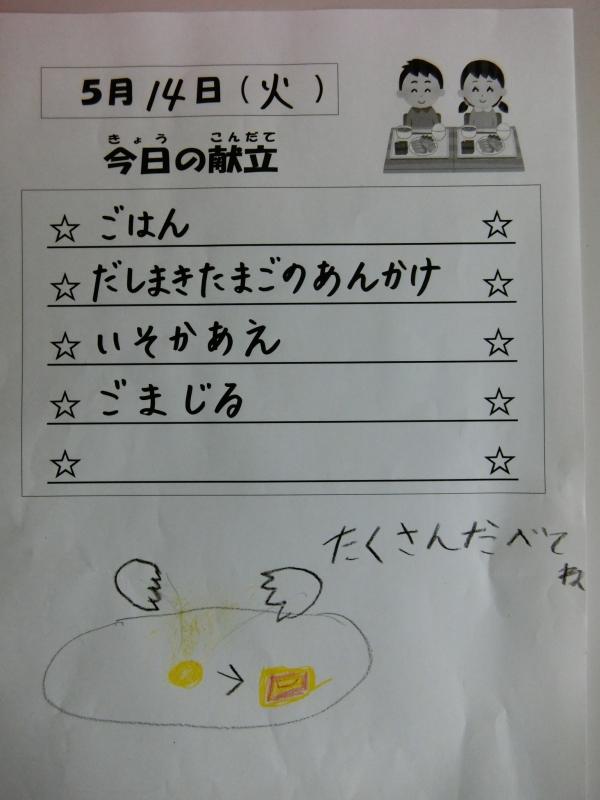 5月14日(火)
きょう こんだて
今日の献立
☆ ごはん ☆
☆ だしまきたまごのあんかけ ☆
☆ いそかあえ ☆
☆ ごまじる ☆
☆ ☆
たくさんたべて
ね